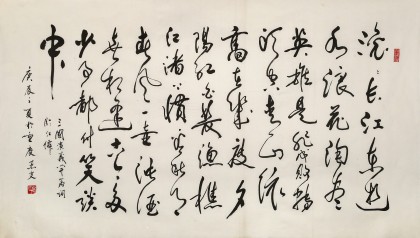 滚滚长江东逝
水浪花淘尽
英雄是非成败转
头空青山依
旧在几度夕
阳红白发渔樵
江渚上惯看秋月
春风一壶浊酒
喜相逢古今多
少事都付笑谈
中
三国演义 词
庚辰之夏于重庆